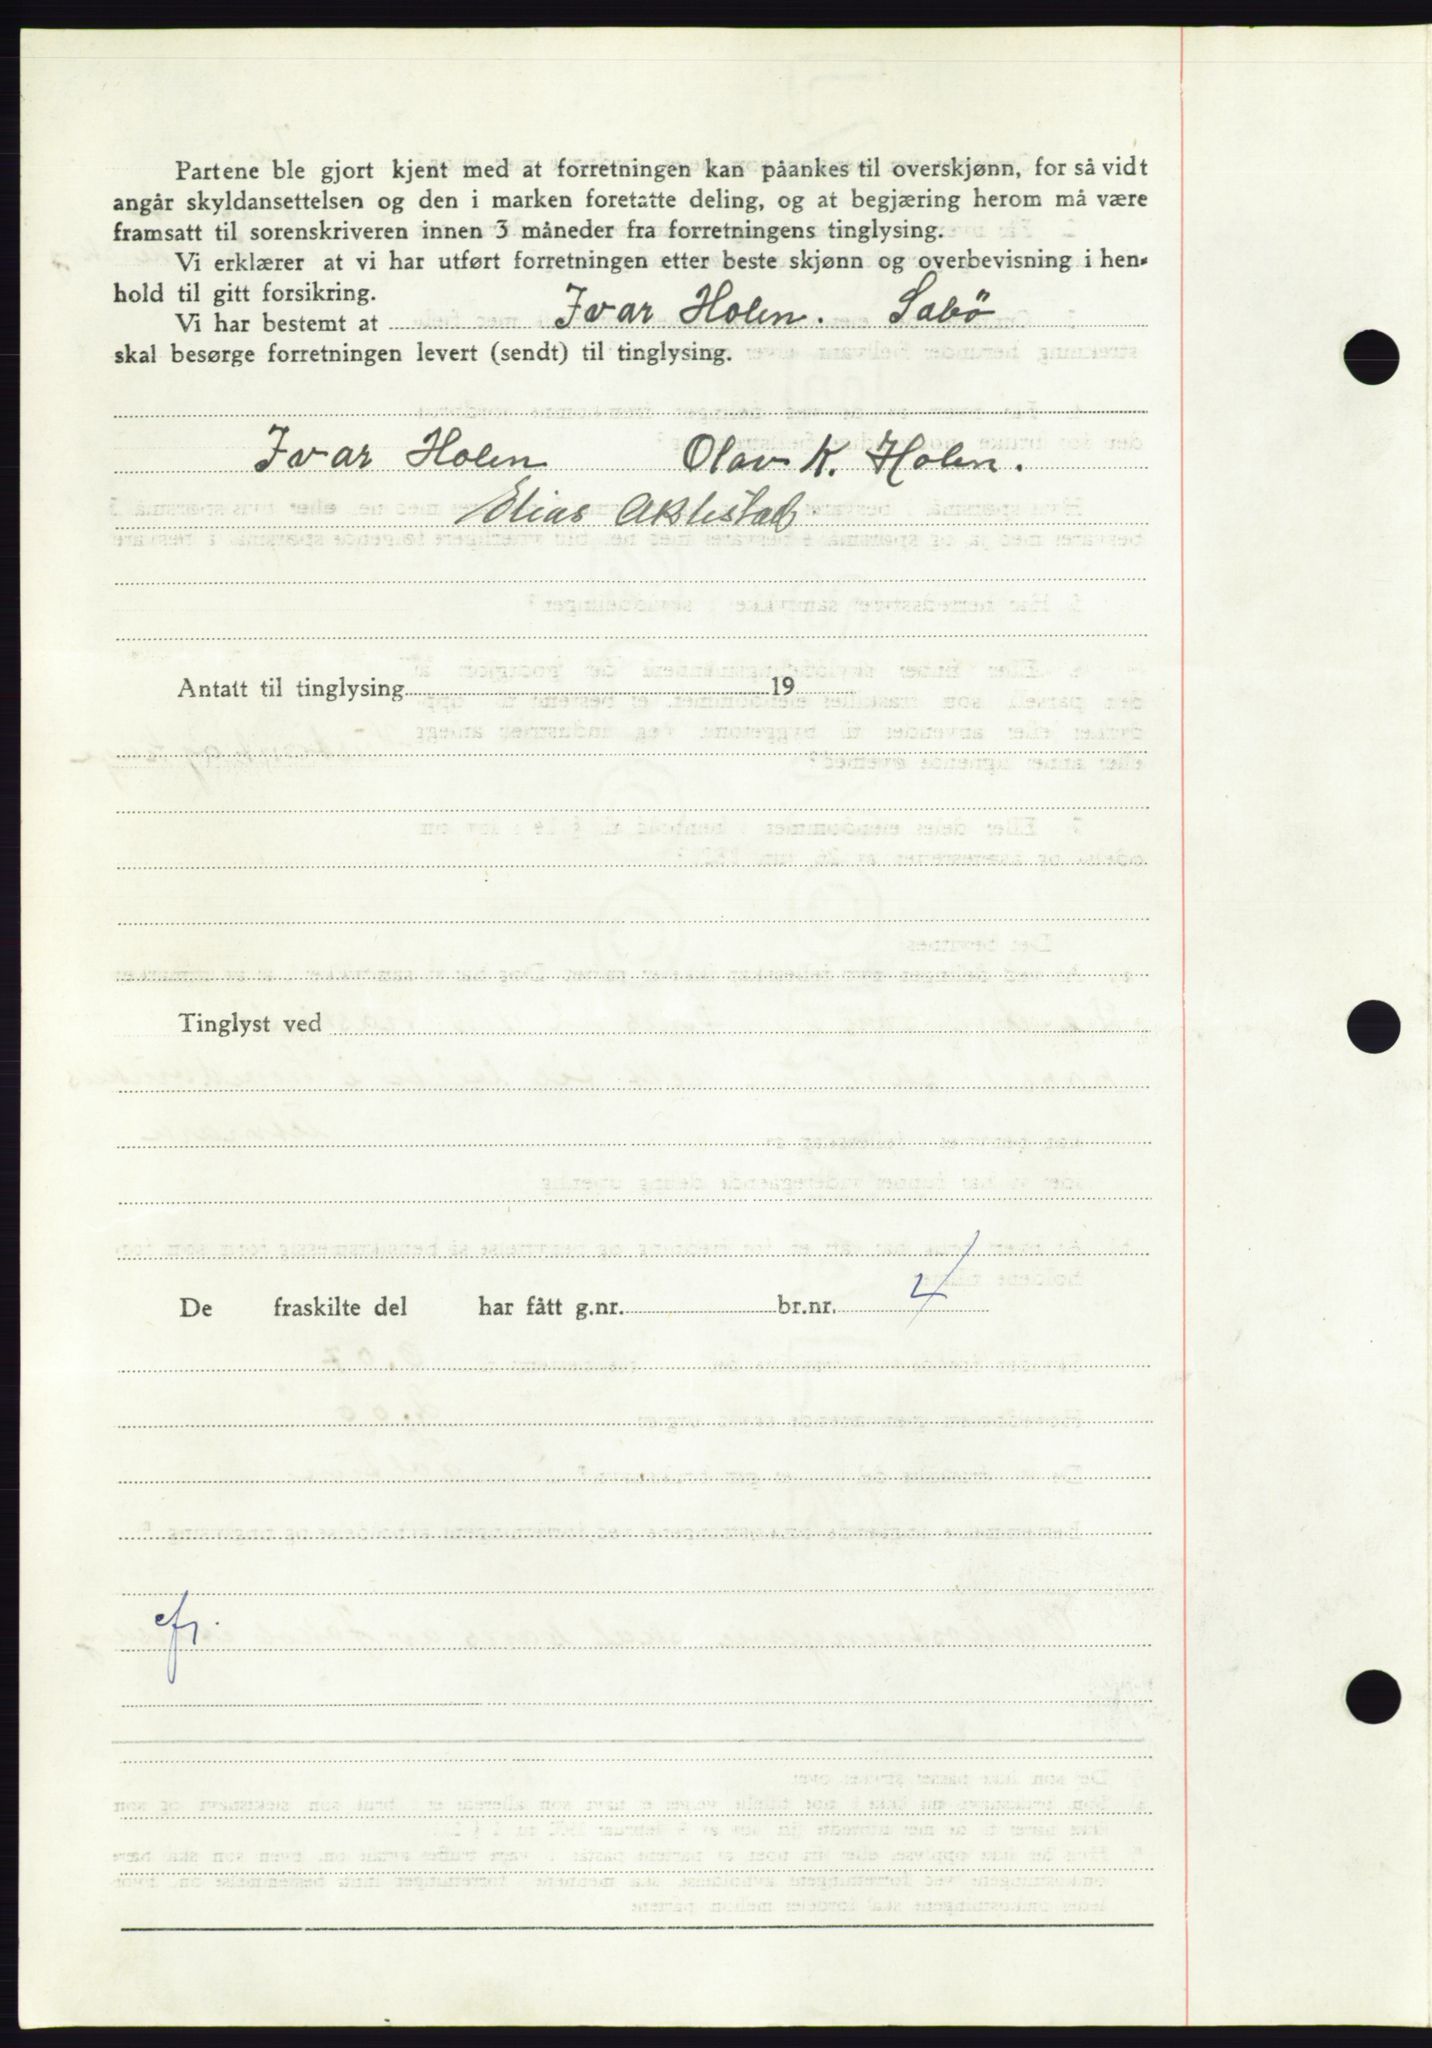 Partene ble gjort kjent med at forretningen kan påankes til overskjønn, for så vidt
angår skyldansettelsen og den i marken foretatte deling, og at begjæring herom må være
framsatt til sorenskriveren innen 3 måneder fra forretningens tinglysing.
Vi erklærer at vi har utført forretningen etter beste skjønn og overbevisning i hen-
hold til gitt forsikring.
Vi har bestemt at Ivar Holen. Sabö
skal besørge forretningen levert (sendt) til tinglysing.
Ivar Holen Olav K. Holen.
Elias Aklestad
Antatt til tinglysing 19
Tinglyst ved
De fraskilte del har fått g.nr. br.nr. 4